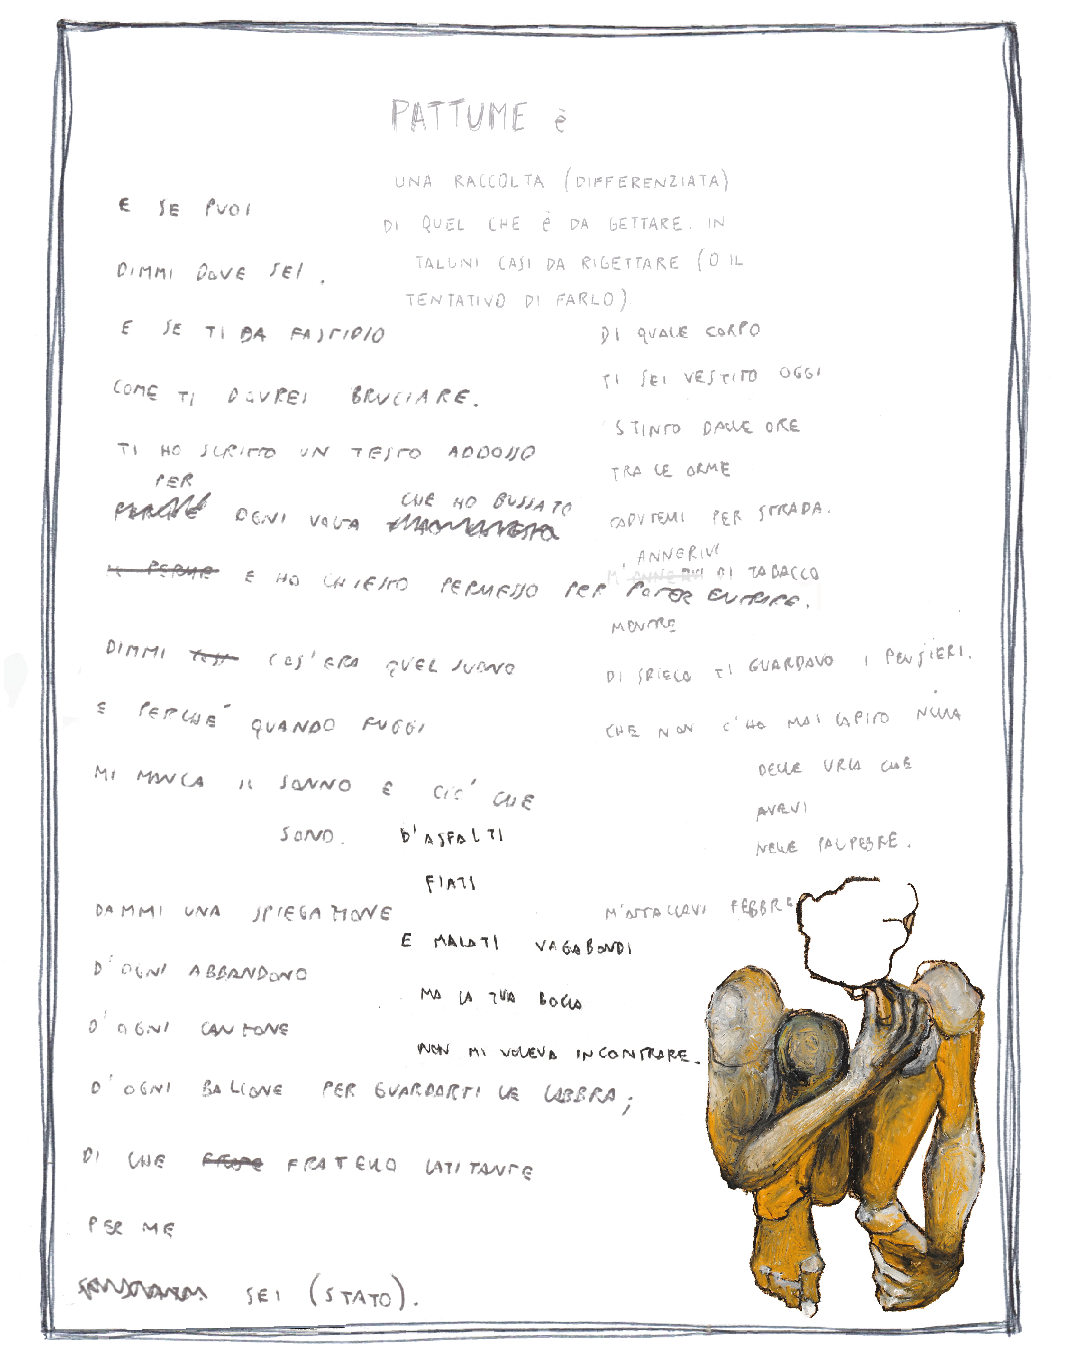 PATTUME è
UNA RACCOLTA (DIFFERENZIATA)
DI QUEL CHE è DA GETTARE. IN
TALUNI CASI DA RIGETTARE (O IL
TENTATIVO DI FARLO)
E SE PUOI
DIMMI DOVE SEI.
E SE TI DA FASTIDIO
COME TI DOVREI BRUCIARE.
TI HO SCRITTO UN TESTO ADDOSSO
PER
CHE HO BUSSATO
PERCHÉ OGNI VOLTA
E HO CHIESTO PERMESSO PER POTER ENTRARE.
DIMMI COS'ERA QUEL SUONO
E PERCHE' QUANDO FUGGI
MI MANCA IL SONNO E CIO' CHE
SONO.
DAMMI UNA SPIEGAZIONE
D'OGNI ABBANDONO
D'OGNI CANZONE
D'OGNI BALCONE PER GUARDARTI LE LABBRA;
DI CHE FRATELLO LATITANTE
PER ME
SEI (STATO).
D'ASFALTI
FIATI
E MALATI VAGABONDI
MA LA TUA BOCCA
NON MI VOLEVA INCONTRARE.
DI QUALE CORPO
TI SEI VESTITO OGGI
STINTO DALLE ORE
TRA LE ORME
CADUTEMI PER STRADA.
ANNERIVI
M' DI TABACCO
MENTRE
DI SBIECO TI GUARDAVO I PENSIERI.
CHE NON C'HO MAI CAPITO NULLA
DELLE URLA CHE
AVEVI
NELLE PALPEBRE.
M'ATTACCAVI FEBBRE